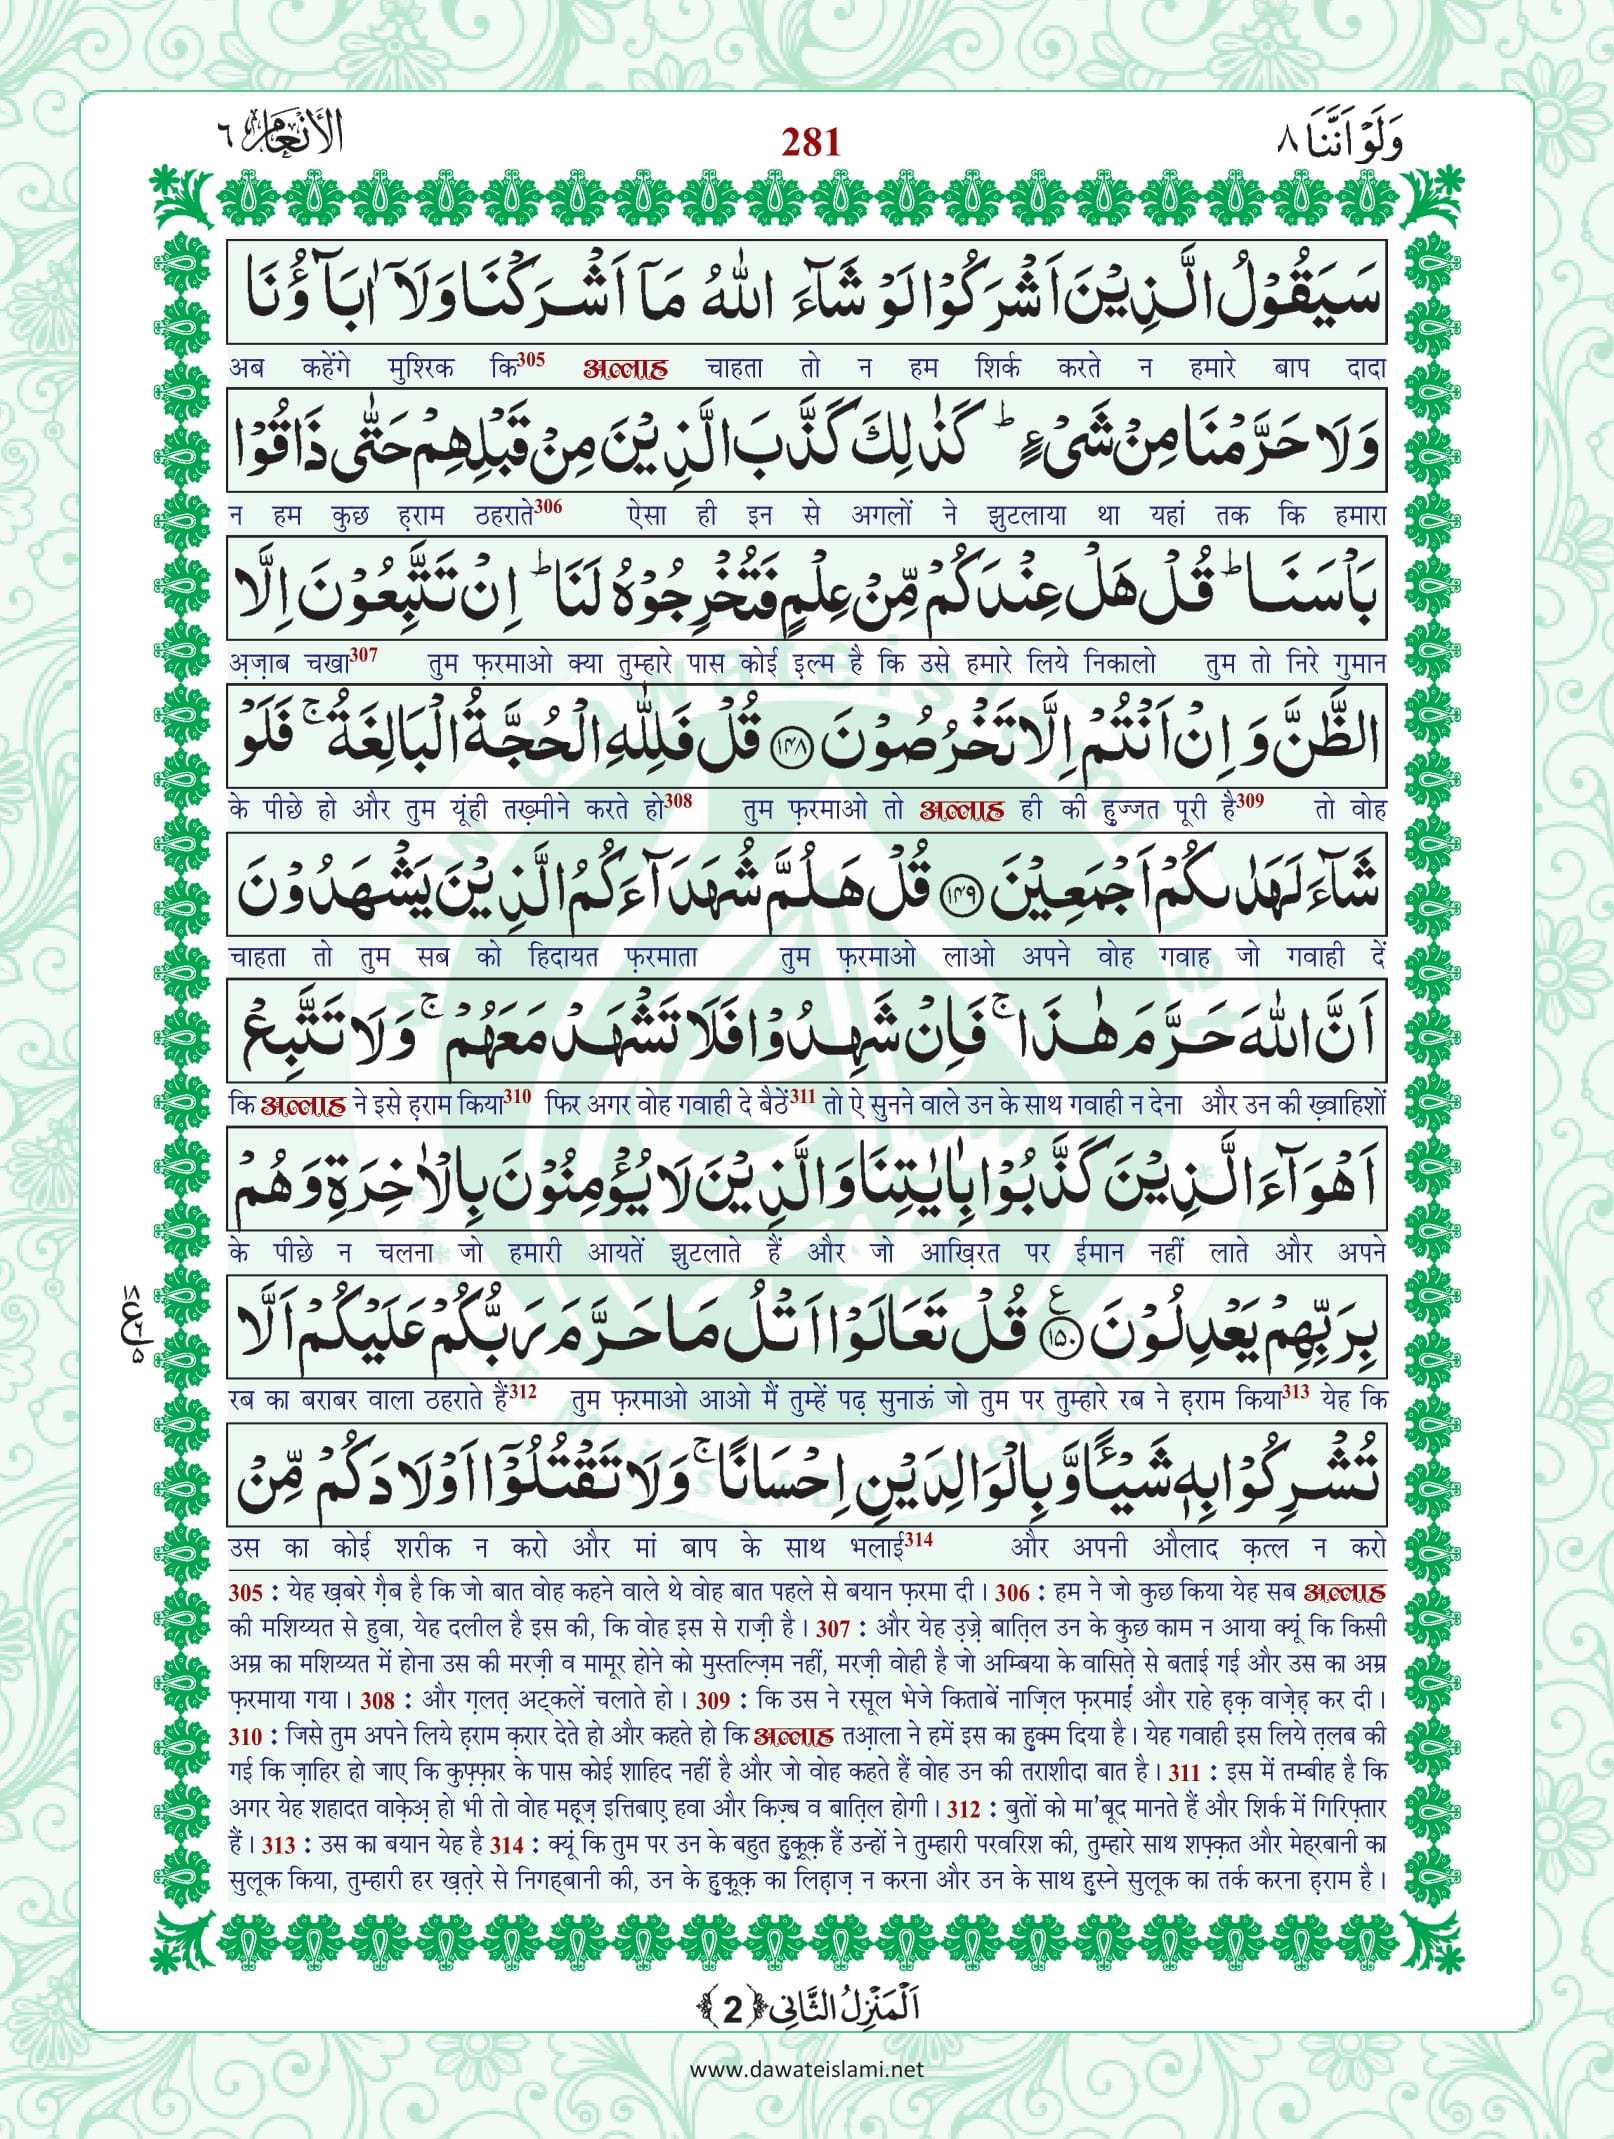 وَلَوْ اَنَّنَا ٨
281
الأنعام ٦
سَيَقُوْلُ الَّذِيْنَ اَشْرَكُوْا لَوْ شَآءَ اللّٰهُ مَاۤ اَشْرَكْنَا وَلَاۤ اٰبَآؤُنَا
अब कहेंगे मुश्रिक कि305 अल्लाह चाहता तो न हम शिर्क करते न हमारे बाप दादा
وَلَا حَرَّمْنَا مِنْ شَیْءٍ ؕ كَذٰلِكَ كَذَّبَ الَّذِيْنَ مِنْ قَبْلِهِمْ حَتّٰى ذَاقُوْا
न हम कुछ ह़राम ठहराते306 ऐसा ही इन से अगलों ने झुटलाया था यहां तक कि हमारा
بَاْسَنَا ؕ قُلْ هَلْ عِنْدَكُمْ مِّنْ عِلْمٍ فَتُخْرِجُوْهُ لَنَا ؕ اِنْ تَتَّبِعُوْنَ اِلَّا
अ़ज़ाब चखा307 तुम फ़रमाओ क्या तुम्हारे पास कोई इ़ल्म है कि उसे हमारे लिये निकालो तुम तो निरे गुमान
الظَّنَّ وَ اِنْ اَنْتُمْ اِلَّا تَخْرُصُوْنَ ﴿١٤٨﴾ قُلْ فَلِلّٰهِ الْحُجَّةُ الْبَالِغَةُ ۚ فَلَوْ
के पीछे हो और तुम यूंही तख़्मीने करते हो308 तुम फ़रमाओ तो अल्लाह ही की ह़ुज्जत पूरी है309 तो वोह
شَآءَ لَهَدٰىكُمْ اَجْمَعِيْنَ ﴿١٤٩﴾ قُلْ هَلُمَّ شُهَدَآءَكُمُ الَّذِيْنَ يَشْهَدُوْنَ
चाहता तो तुम सब को हिदायत फ़रमाता तुम फ़रमाओ लाओ अपने वोह गवाह जो गवाही दें
اَنَّ اللّٰهَ حَرَّمَ هٰذَا ۚ فَاِنْ شَهِدُوْا فَلَا تَشْهَدْ مَعَهُمْ ۚ وَلَا تَتَّبِعْ
कि अल्लाह ने इसे ह़राम किया310 फिर अगर वोह गवाही दे बैठें311 तो ऐ सुनने वाले उन के साथ गवाही न देना और उन की ख़्वाहिशों
اَهْوَآءَ الَّذِيْنَ كَذَّبُوْا بِاٰيٰتِنَا وَالَّذِيْنَ لَا يُؤْمِنُوْنَ بِالْاٰخِرَةِ وَهُمْ
के पीछे न चलना जो हमारी आयतें झुटलाते हैं और जो आख़िरत पर ईमान नहीं लाते और अपने
بِرَبِّهِمْ يَعْدِلُوْنَ ﴿١٥٠﴾ قُلْ تَعَالَوْا اَتْلُ مَا حَرَّمَ رَبُّكُمْ عَلَيْكُمْ اَلَّا
रब का बराबर वाला ठहराते हैं312 तुम फ़रमाओ आओ मैं तुम्हें पढ़ सुनाऊं जो तुम पर तुम्हारे रब ने ह़राम किया313 येह कि
تُشْرِكُوْا بِهٖ شَيْـًٔا وَّ بِالْوَالِدَيْنِ اِحْسَانًا ۚ وَلَا تَقْتُلُوْۤا اَوْلَادَكُمْ مِّنْ
उस का कोई शरीक न करो और मां बाप के साथ भलाई314 और अपनी औलाद क़त्ल न करो
305 : येह ख़बरे ग़ैब है कि जो बात वोह कहने वाले थे वोह बात पहले से बयान फ़रमा दी। 306 : हम ने जो कुछ किया येह सब अल्लाह
की मशिय्यत से हुवा, येह दलील है इस की, कि वोह इस से राज़ी है। 307 : और येह उ़ज़्रे बात़िल उन के कुछ काम न आया क्यूं कि किसी
अम्र का मशिय्यत में होना उस की मरज़ी व मामूर होने को मुस्तल्ज़िम नहीं, मरज़ी वोही है जो अम्बिया के वासित़े से बताई गई और उस का अम्र
फ़रमाया गया। 308 : और ग़लत़ अट्कलें चलाते हो। 309 : कि उस ने रसूल भेजे किताबें नाज़िल फ़रमाई और राहे ह़क़ वाज़ेह़ कर दी।
310 : जिसे तुम अपने लिये ह़राम क़रार देते हो और कहते हो कि अल्लाह तआ़ला ने हमें इस का ह़ुक्म दिया है। येह गवाही इस लिये त़लब की
गई कि ज़ाहिर हो जाए कि कुफ़्फ़ार के पास कोई शाहिद नहीं है और जो वोह कहते हैं वोह उन की तराशीदा बात है। 311 : इस में तम्बीह है कि
अगर येह शहादत वाक़ेअ़ हो भी तो वोह मह़्ज़ इत्तिबाए़ हवा और किज़्ब व बात़िल होगी। 312 : बुतों को मा'बूद मानते हैं और शिर्क में गिरिफ़्तार
हैं। 313 : उस का बयान येह है 314 : क्यूं कि तुम पर उन के बहुत ह़ुक़ूक़ हैं उन्हों ने तुम्हारी परवरिश की, तुम्हारे साथ शफ़्क़त और मेह्रबानी का
सुलूक किया, तुम्हारी हर ख़त़रे से निगह्बानी की, उन के ह़ुक़ूक़ का लिह़ाज़ न करना और उन के साथ ह़ुस्ने सुलूक का तर्क करना ह़राम है।
اَلْمَنْزِلُ الثَّانِی ﴿2﴾
www.dawateislami.net